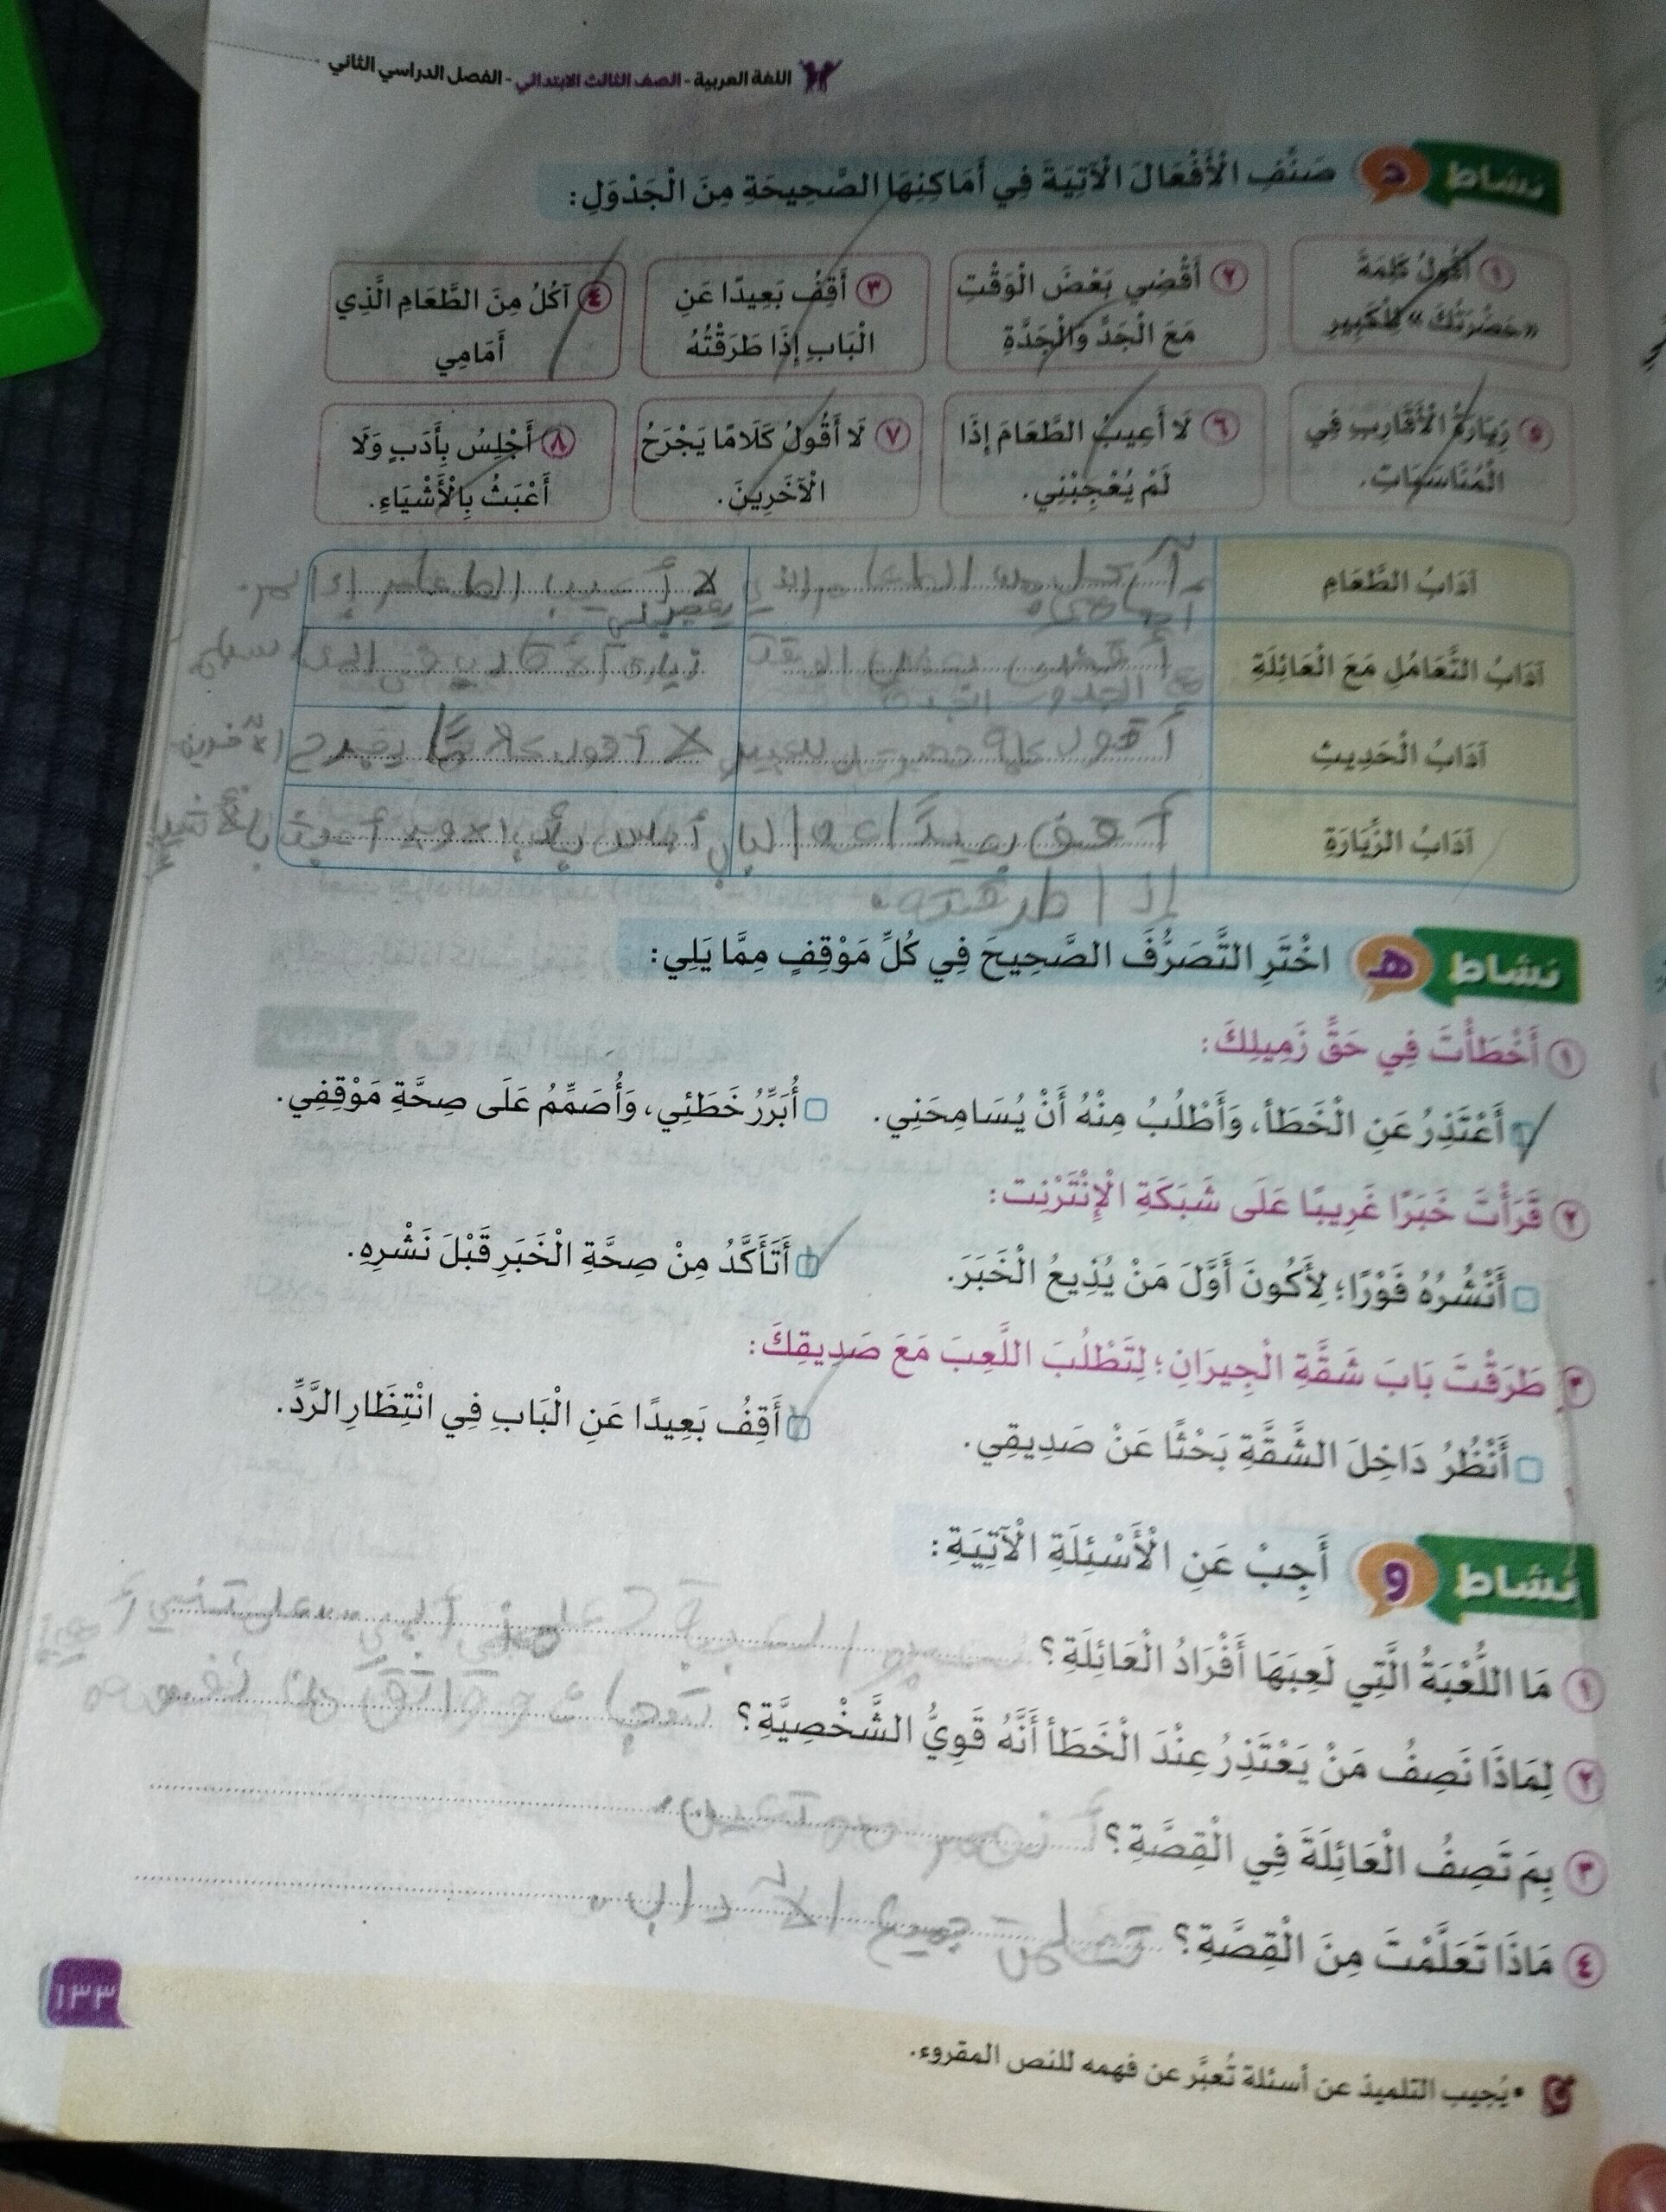 اللغة العربية - الصف الثالث الابتدائي - الفصل الدراسي الثاني
نشاط د صَنِّفِ الْأَفْعَالَ الْآتِيَةَ فِي أَمَاكِنِهَا الصَّحِيحَةِ مِنَ الْجَدْوَلِ:
١ أَقُولُ كَلِمَةَ
«حَضْرَتُكَ» لِلْكَبِيرِ
٢ أَقْضِي بَعْضَ الْوَقْتِ
مَعَ الْجَدِّ وَالْجَدَّةِ
٣ أَقِفُ بَعِيدًا عَنِ
الْبَابِ إِذَا طَرَقْتُهُ
٤ آكُلُ مِنَ الطَّعَامِ الَّذِي
أَمَامِي
٥ زِيَارَةُ الْأَقَارِبِ فِي
الْمُنَاسَبَاتِ.
٦ لَا أَعِيبُ الطَّعَامَ إِذَا
لَمْ يُعْجِبْنِي.
٧ لَا أَقُولُ كَلَامًا يَجْرَحُ
الْآخَرِينَ.
٨ أَجْلِسُ بِأَدَبٍ وَلَا
أَعْبَثُ بِالْأَشْيَاءِ.
آدَابُ الطَّعَامِ آكل من الطعام الذي لا أعيب الطعام إذا لم
آدَابُ التَّعَامُلِ مَعَ الْعَائِلَةِ أقضي بعض الوقت زيارة
الجد
آدَابُ الْحَدِيثِ أقول كلمة للكبير لا أقول كلامًا يجرح الآخرين
آدَابُ الزِّيَارَةِ أقف بعيدًا الباب أجلس بأدب
إذا طرقته.
نشاط هـ اخْتَرِ التَّصَرُّفَ الصَّحِيحَ فِي كُلِّ مَوْقِفٍ مِمَّا يَلِي:
١ أَخْطَأْتَ فِي حَقِّ زَمِيلِكَ:
أَعْتَذِرُ عَنِ الْخَطَأِ، وَأَطْلُبُ مِنْهُ أَنْ يُسَامِحَنِي. أُبَرِّرُ خَطَئِي، وَأُصَمِّمُ عَلَى صِحَّةِ مَوْقِفِي.
٢ قَرَأْتَ خَبَرًا غَرِيبًا عَلَى شَبَكَةِ الْإِنْتَرْنِت:
أَنْشُرُهُ فَوْرًا؛ لِأَكُونَ أَوَّلَ مَنْ يُذِيعُ الْخَبَرَ. أَتَأَكَّدُ مِنْ صِحَّةِ الْخَبَرِ قَبْلَ نَشْرِهِ.
٣ طَرَقْتَ بَابَ شَقَّةِ الْجِيرَانِ؛ لِتَطْلُبَ اللَّعِبَ مَعَ صَدِيقِكَ:
أَنْظُرُ دَاخِلَ الشَّقَّةِ بَحْثًا عَنْ صَدِيقِي. أَقِفُ بَعِيدًا عَنِ الْبَابِ فِي انْتِظَارِ الرَّدِّ.
نشاط و أَجِبْ عَنِ الْأَسْئِلَةِ الْآتِيَةِ:
١ مَا اللُّعْبَةُ الَّتِي لَعِبَهَا أَفْرَادُ الْعَائِلَةِ؟
٢ لِمَاذَا نَصِفُ مَنْ يَعْتَذِرُ عِنْدَ الْخَطَأِ أَنَّهُ قَوِيُّ الشَّخْصِيَّةِ؟
٣ بِمَ تَصِفُ الْعَائِلَةَ فِي الْقِصَّةِ؟
٤ مَاذَا تَعَلَّمْتَ مِنَ الْقِصَّةِ؟ جميع
• يُجيب التلميذ عن أسئلة تُعبَّر عن فهمه للنص المقروء.
١٣٣